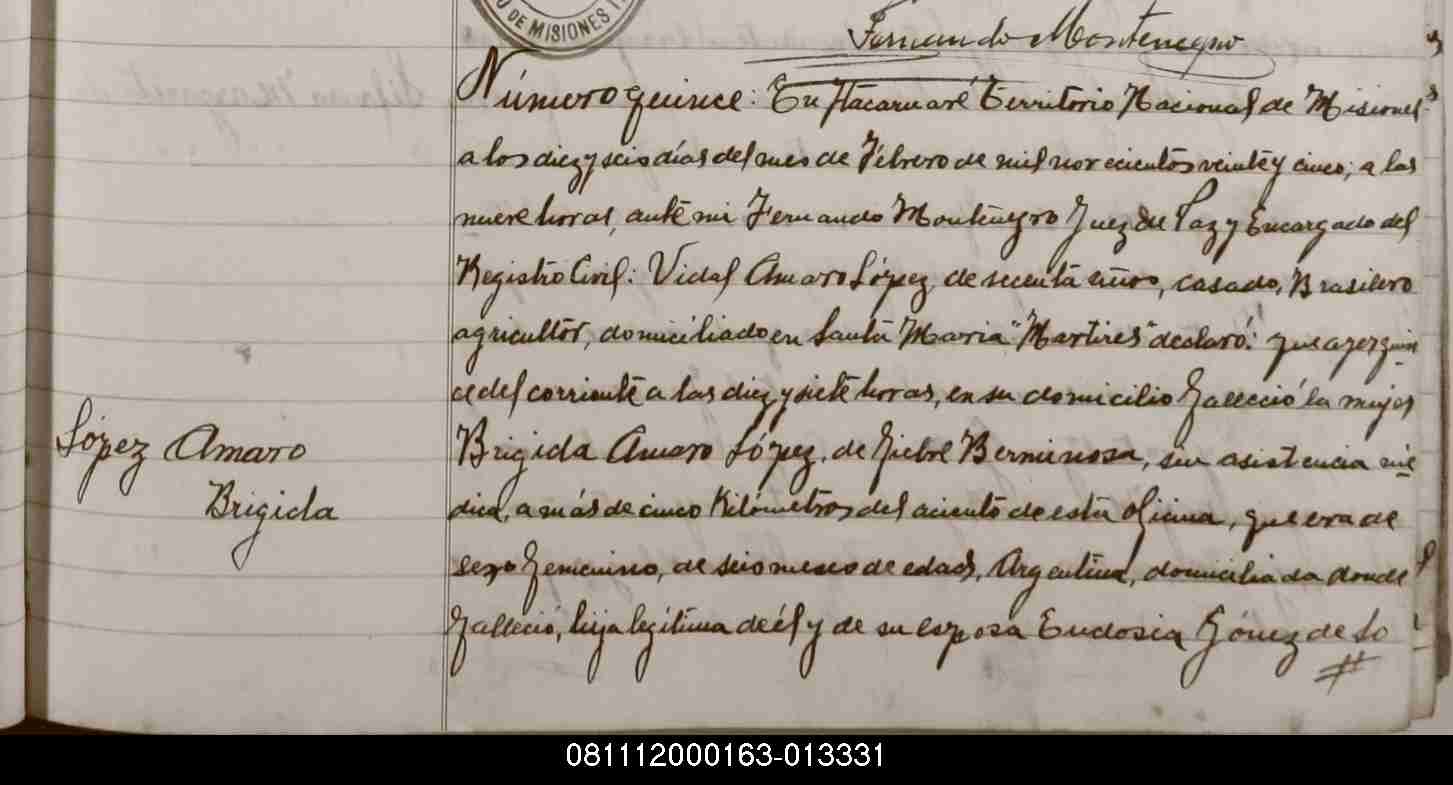 DE MISIONES
Fernando Montenegro
Número quince: En Itacaruaré Territorio Nacional de Misiones
a los diez y seis días del mes de Febrero de mil novecientos veinte y cinco; a las
nueve horas, ante mi Fernando Montenegro Juez de Paz y Encargado del
Registro Civil: Vidal Amaro López, de secenta años, casado, Brasilero
agricultor, domiciliado en Santa Maria "Martires" declaró: que ayer quin
ce del corriente a las diez y siete horas, en su domicilio falleció la mujer
López Amaro
Brigida
Brigida Amaro López, de fiebre Berminosa, sin asistencia mé
dica, a más de cinco Kilómetros del aciento de esta oficina, que era de
sexo femenino, de seis meses de edad, Argentina, domiciliada donde
falleció, hija legítima de él y de su esposa Eudosia Gómez de Lo
081112000163-013331